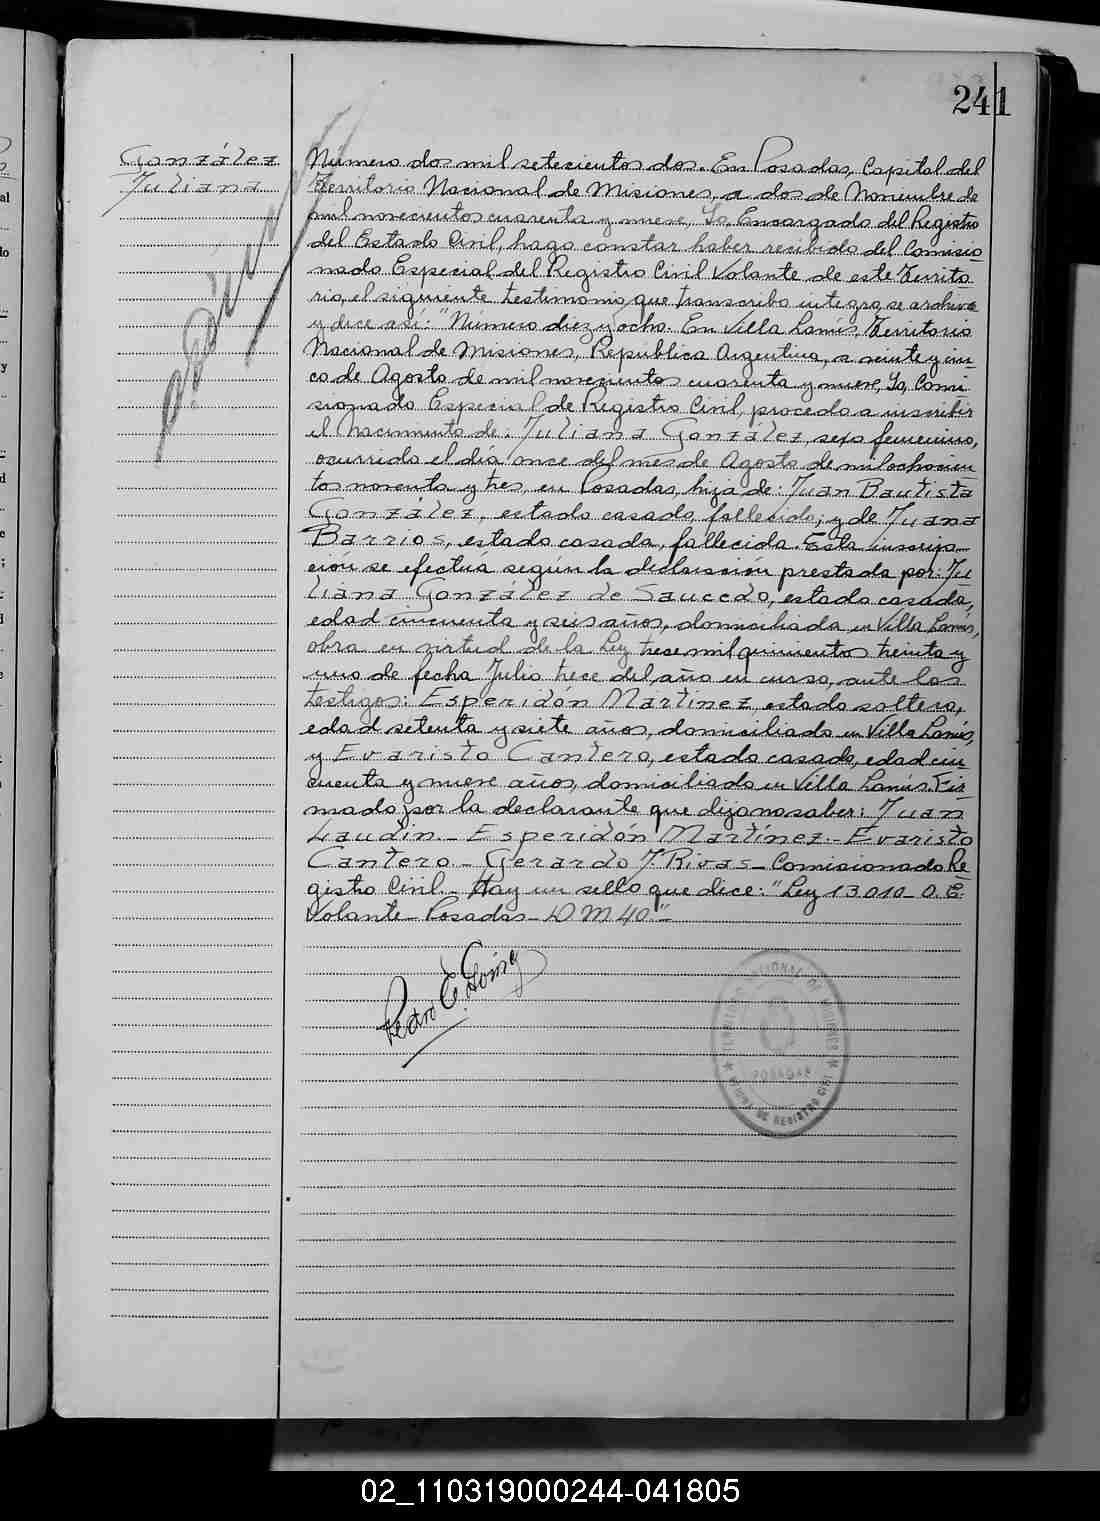 241
González
Juliana
Número dos mil setecientos dos. En Posadas, Capital del
Territorio Nacional de Misiones, a dos de Noviembre de
mil novecientos cuarenta y nueve, Yo, Encargado del Registro
del Estado Civil, hago constar haber recibido del Comisio
nado Especial del Registro Civil Volante de este Territo
rio, el siguiente testimonio que transcribo integro, se archiva
y dice así: "Número diez y ocho. En Villa Lanús, Territorio
Nacional de Misiones, República Argentina, a veinte y cin
co de Agosto de mil novecientos cuarenta y nueve, Yo, Comi
sionado Especial de Registro Civil, procedo a inscribir
el Nacimiento de: Juliana González, sexo femenino,
ocurrido el día once del mes de Agosto de mil ochocien
tos noventa y tres, en Posadas, hija de: Juan Bautista
González, estado casado, fallecido; y de Juana
Barrios, estado casada, fallecida. Esta inscrip
ción se efectúa según la declaración prestada por: Ju
liana González de Saucedo, estado casada,
edad cincuenta y seis años, domiciliada en Villa Lanús,
obra en virtud de la Ley trece mil quinientos treinta y
uno de fecha Julio trece del año en curso, ante los
testigos: Esperidón Martinez, estado soltero,
edad setenta y siete años, domiciliado en Villa Lanús,
y Evaristo Cantero, estado casado, edad cin
cuenta y nueve años, domiciliado en Villa Lanús. Fir
mado por la declarante que dijo no saber: Juan
Laudin.- Esperidón Martínez.- Evaristo
Cantero - Gerardo J. Rivas - Comisionado Re
gistro Civil.- Hay un sello que dice: "Ley 13.010 - O. E.
Volante - Posadas - D M 40"-
Pedro E.
TERRITORIO NACIONAL DE MISIONES
POSADAS
OFICINA DE REGISTRO CIVIL
02_110319000244-041805